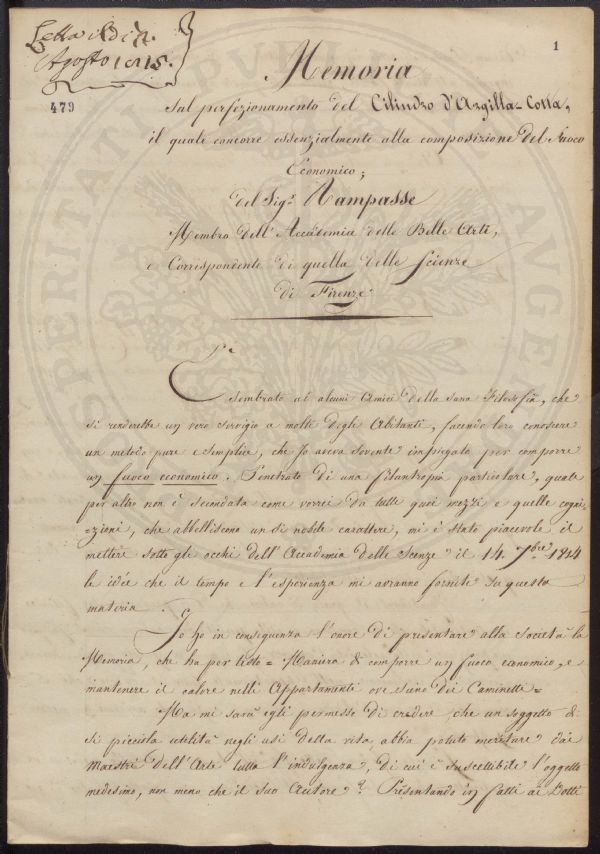 Letta il dì 7.
Agosto 1815.
1
479
Memoria
Sul perfezionamento del Cilindro d'Argilla-Cotta,
il quale concorre essenzialmente alla composizione del Fuoco
Economico;
del Sigr. Rampasse
Membro dell'Accademia delle Belle Arti,
e Corrispondente di quella delle Scienze
di Firenze
È
sembrato ad alcuni Amici della sana Filosofia, che
si renderebbe un vero servigio a molti degli Abitanti, facendo loro conoscere
un metodo puro e semplice, che Io aveva sovente impiegato per comporre
un fuoco economico. Penetrato di una filantropia particolare, quale
per altro non è secondata come vorrei da tutti quei mezzi e quelle cogni-
=zioni, che abbelliscono un sì nobile carattere, mi è stato piacevole il
mettere sotto gli occhi dell'Accademia delle Scenze il 14. 7bre 1814
le idée che il tempo e l'esperienza mi avranno fornite su questa
materia.
Io ho in conseguenza l'onore di presentare alla Società la
Memoria, che ha per titolo = Maniera di comporre un fuoco economico, e
mantenere il calore nelli Appartamenti ove sino dei Caminetti =
Ma mi sarà egli permesso di credere che un soggetto di
sì piccola utilità negli usi della vita, abbia potuto meritare dai
Maestri dell'Arte tutta l'indulgenza, di cui è suscettibile l'oggetto
medesimo, non meno che il suo Autore? Presentando in fatti ai Dotti